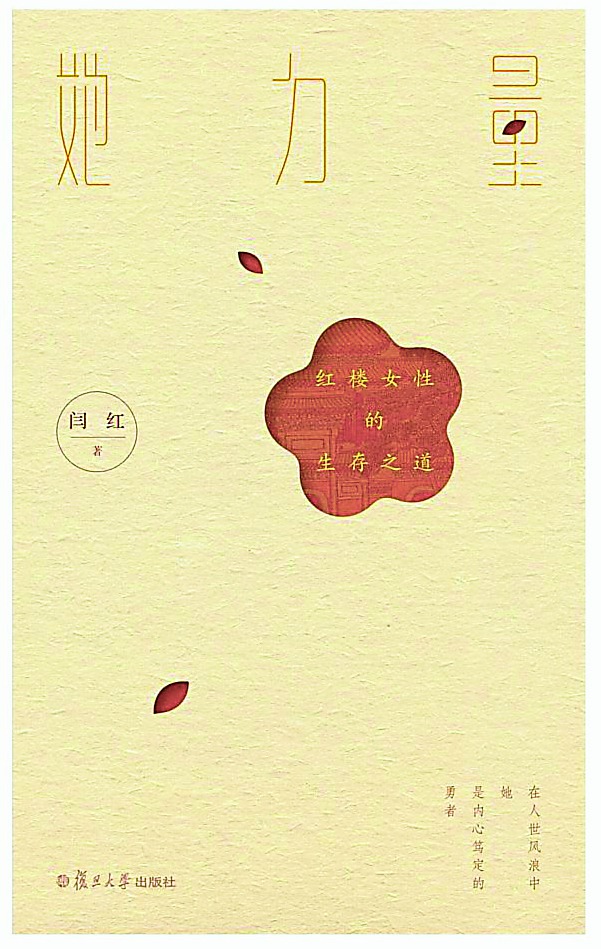 她力量
红楼女性
的
生存之道
闫红
著
在人世风浪中
她
是内心笃定的
勇者
復旦大學出版社